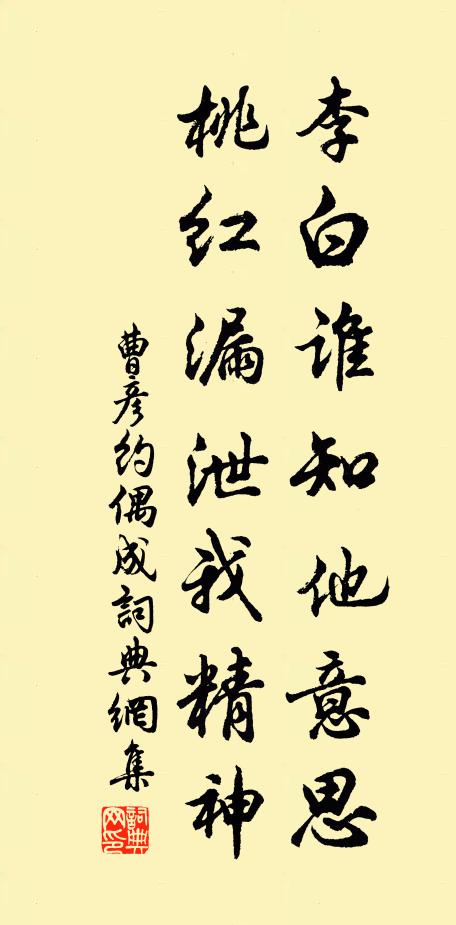 李白谁知他意思
桃红漏泄我精神
曹彦约偶成词典網集
詞典網印